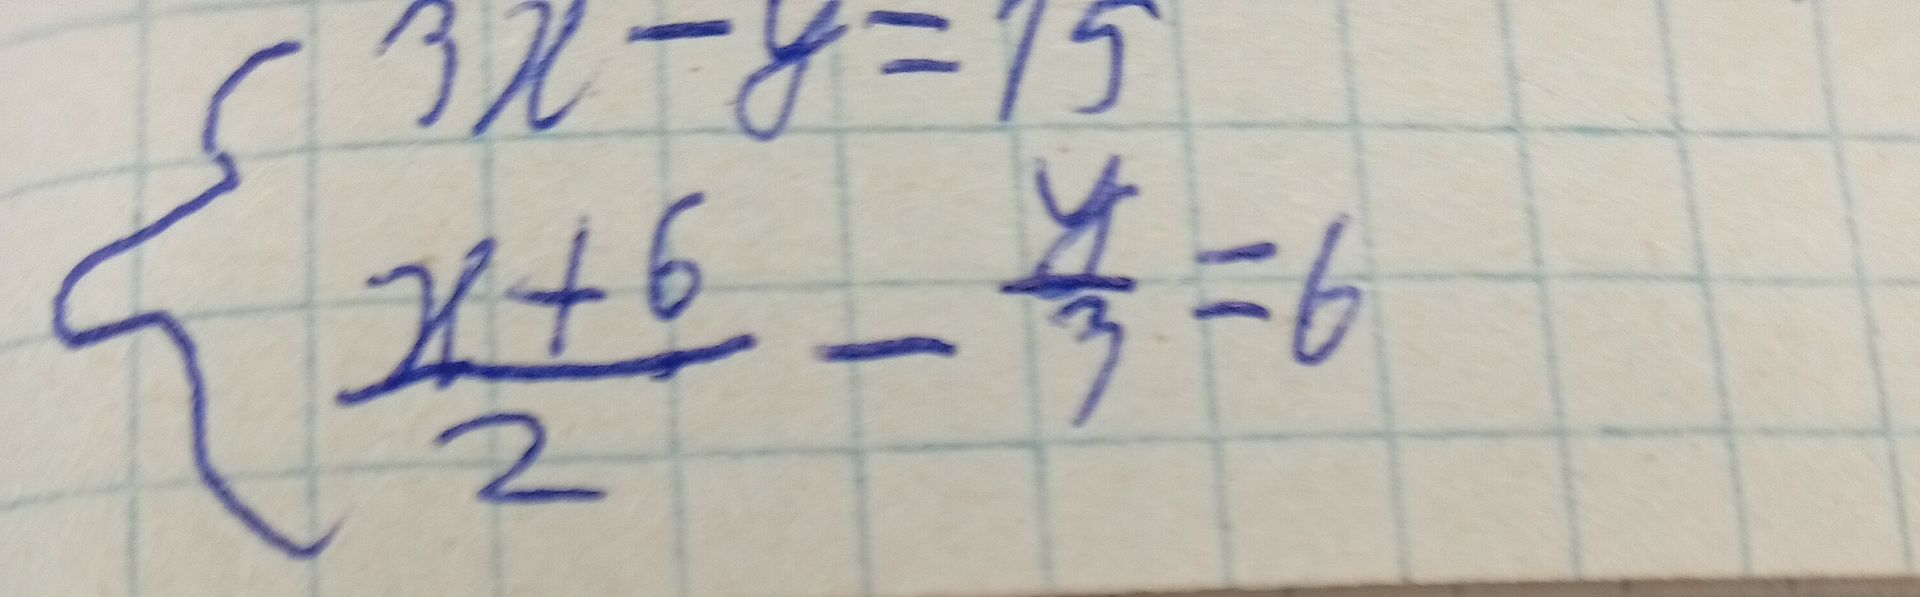 3x - y = 15
(x + 6)/2 - y/3 = 6